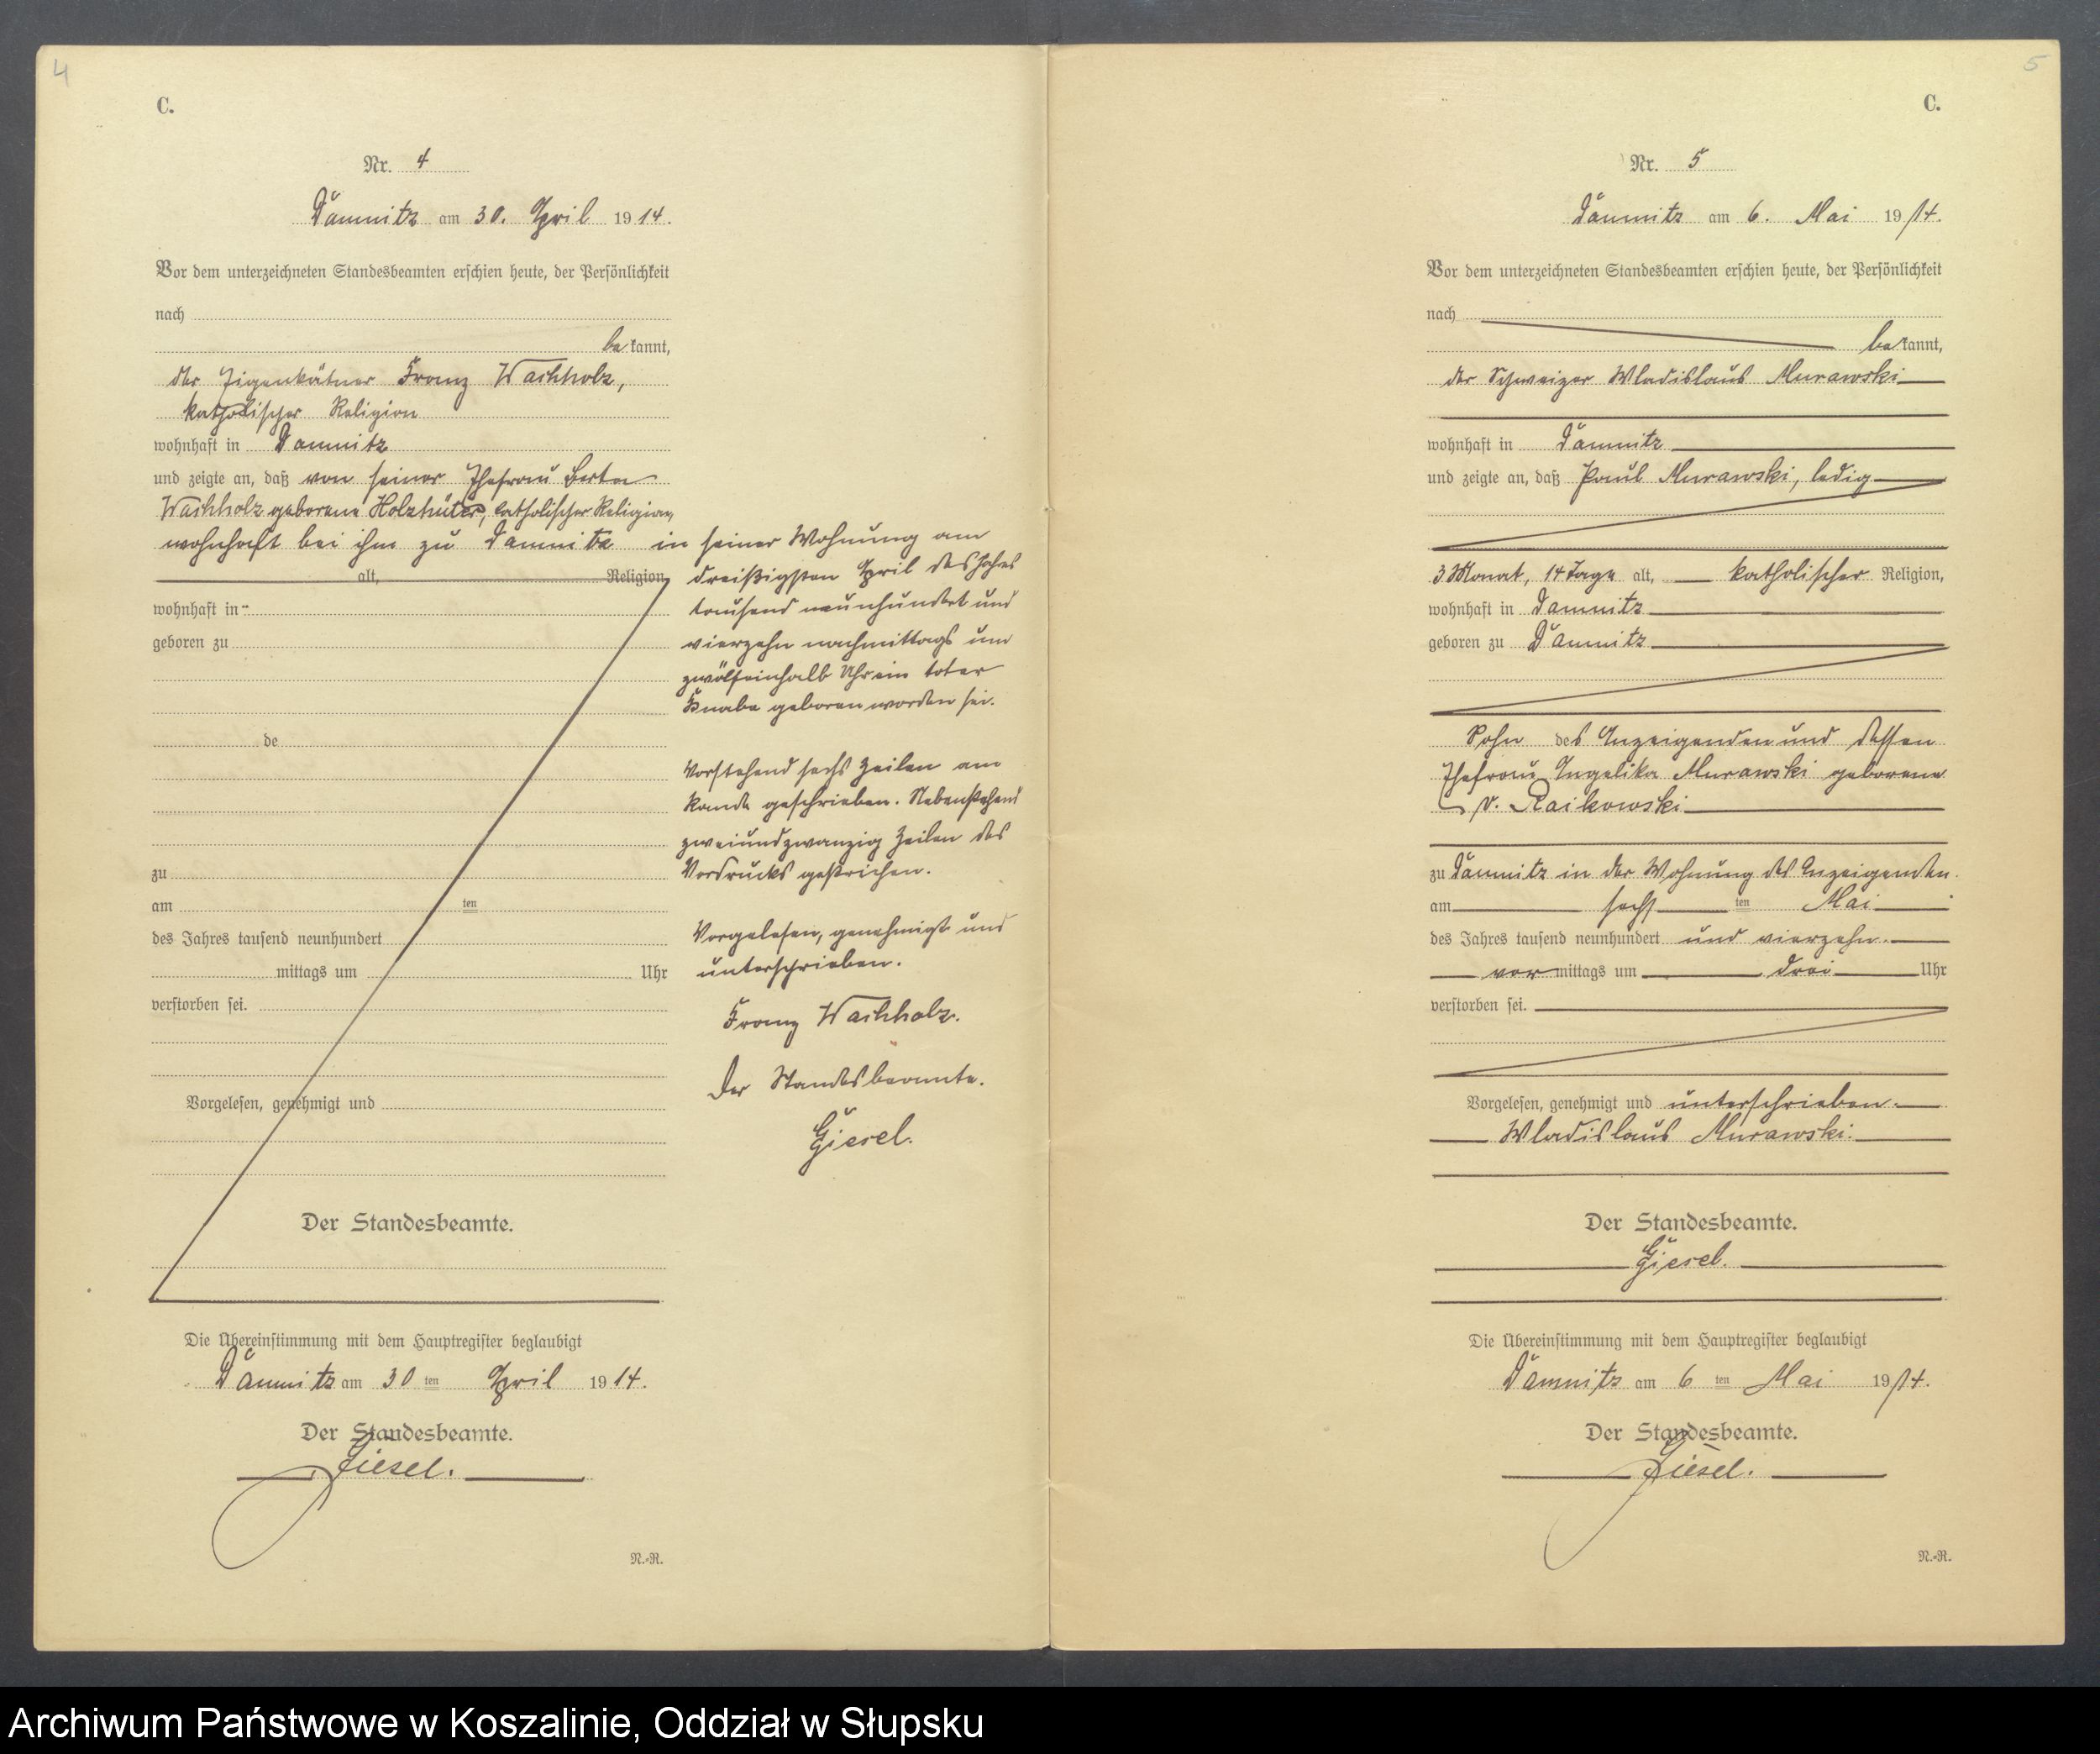 4
C.
Nr. 4
Damnitz am 30. April 1914.
Vor dem unterzeichneten Standesbeamten erschien heute, der Persönlichkeit
nach
bekannt,
der Eigenkätner Franz Wachholz,
katholischer Religion
wohnhaft in Damnitz
und zeigte an, daß von seiner Ehefrau Berta
Wachholz geborene Holzhüter, katholischer Religion,
wohnhaft bei ihm zu Damnitz in seiner Wohnung am
alt, Religion, dreißigsten April des Jahres
wohnhaft in tausend neunhundert und
geboren zu vierzehn nachmittags um
zwölfeinhalb Uhr ein toter
Knabe geboren worden sei.
de
Vorstehend sechs Zeilen am
Rande geschrieben. Nebenstehend
zweiundzwanzig Zeilen des
zu Vordrucks gestrichen.
am ten
des Jahres tausend neunhundert Vorgelesen, genehmigt und
mittags um Uhr unterschrieben.
verstorben sei. Franz Wachholz.
Der Standesbeamte.
Vorgelesen, genehmigt und
Giesel.
Der Standesbeamte.
Die Übereinstimmung mit dem Hauptregister beglaubigt
Damnitz am 30 ten April 1914.
Der Standesbeamte.
Giesel.
N.-R.
5
C.
Nr. 5
Damnitz am 6. Mai 1914.
Vor dem unterzeichneten Standesbeamten erschien heute, der Persönlichkeit
nach
bekannt,
der Schweizer Wladislaus Murawski
wohnhaft in Damnitz
und zeigte an, daß Paul Murawski, ledig
3 Monat, 14 Tage alt, katholischer Religion,
wohnhaft in Damnitz
geboren zu Damnitz
Sohn des Anzeigenden und dessen
Ehefrau Angelika Murawski geborene
v. Raikowski
zu Damnitz in der Wohnung des Anzeigenden
am sechsten Mai
des Jahres tausend neunhundert und vierzehn
vormittags um drei Uhr
verstorben sei.
Vorgelesen, genehmigt und unterschrieben.
Wladislaus Murawski.
Der Standesbeamte.
Giesel.
Die Übereinstimmung mit dem Hauptregister beglaubigt
Damnitz am 6 ten Mai 1914.
Der Standesbeamte.
Giesel.
N.-R.
Archiwum Państwowe w Koszalinie, Oddział w Słupsku